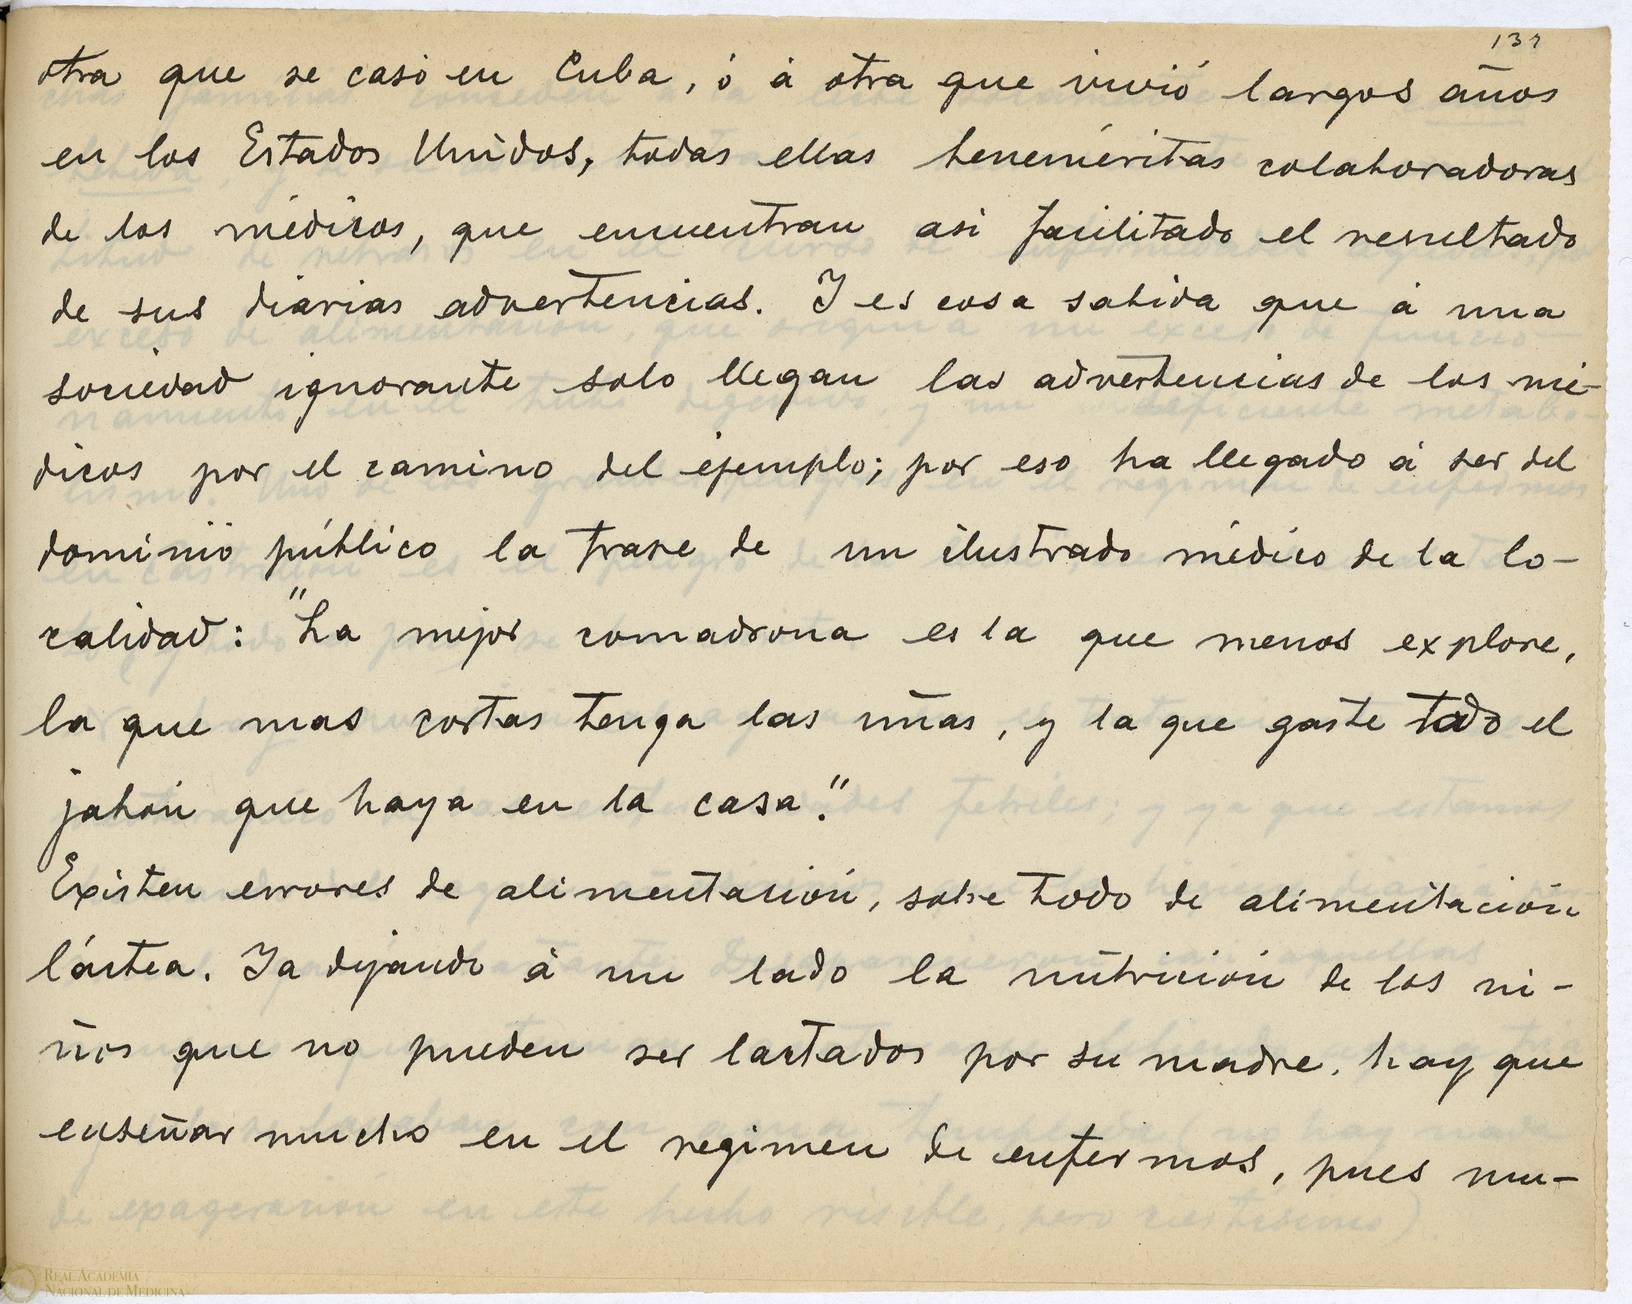 137
otra que se casó en Cuba, ó á otra que vivió largos años
en los Estados Unidos, todas ellas beneméritas colaboradoras
de los médicos, que encuentran asi facilitado el resultado
de sus diarias advertencias. Y es cosa sabida que á una
sociedad ignorante solo llegan las advertencias de los mé-
dicos por el camino del ejemplo; por eso ha llegado á ser del
dominio público la frase de un ilustrado médico de la lo-
calidad: "La mejor comadrona es la que menos explore,
la que mas cortas tenga las uñas, y la que gaste todo el
jabón que haya en la casa."
Existen errores de alimentación, sobre todo de alimentación
láctea. Ya dejando á un lado la nutrición de los ni-
ños que no pueden ser lactados por su madre, hay que
enseñar mucho en el regimen de enfermos, pues mu-
REAL ACADEMIA
NACIONAL DE MEDICINA